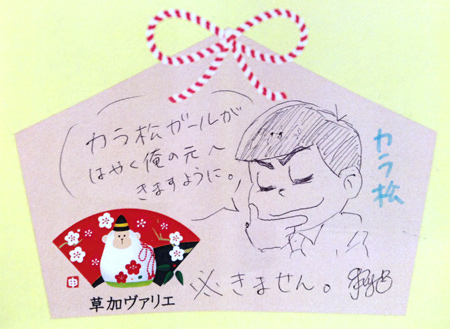 カラ松ガールが
はやく俺の元へ
きますように。
カラ松
※きません。
申
草加ヴァリエ